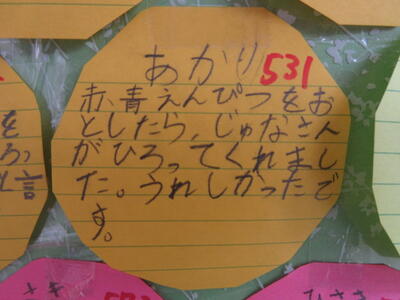 あかり 531
赤、青えんぴつをお
としたら、じゅなさん
がひろってくれまし
た。うれしかったで
す。